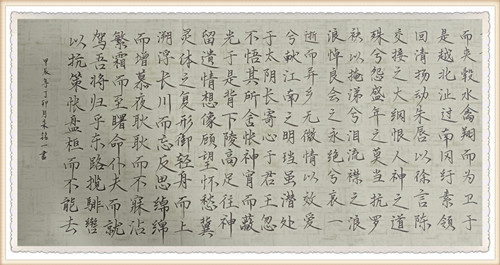 而夹毂水禽翔而为卫于
是越北沚过南冈纡素领
回清扬动朱唇以徐言陈
交接之大纲恨人神之道
殊兮怨盛年之莫当抗罗
袂以掩涕兮泪流襟之浪
浪悼良会之永绝兮哀一
逝而异乡无微情以效爱
兮献江南之明珰虽潜处
于太阴长寄心于君王忽
不悟其所舍怅神宵而蔽
光于是背下陵高足往神
留遗情想像顾望怀愁冀
灵体之复形御轻舟而上
溯浮长川而忘反思绵绵
而增慕夜耿耿而不寐沾
繁霜而至曙命仆夫而就
驾吾将归乎东路揽騑辔
以抗策怅盘桓而不能去
甲辰年丁卯月朱一书